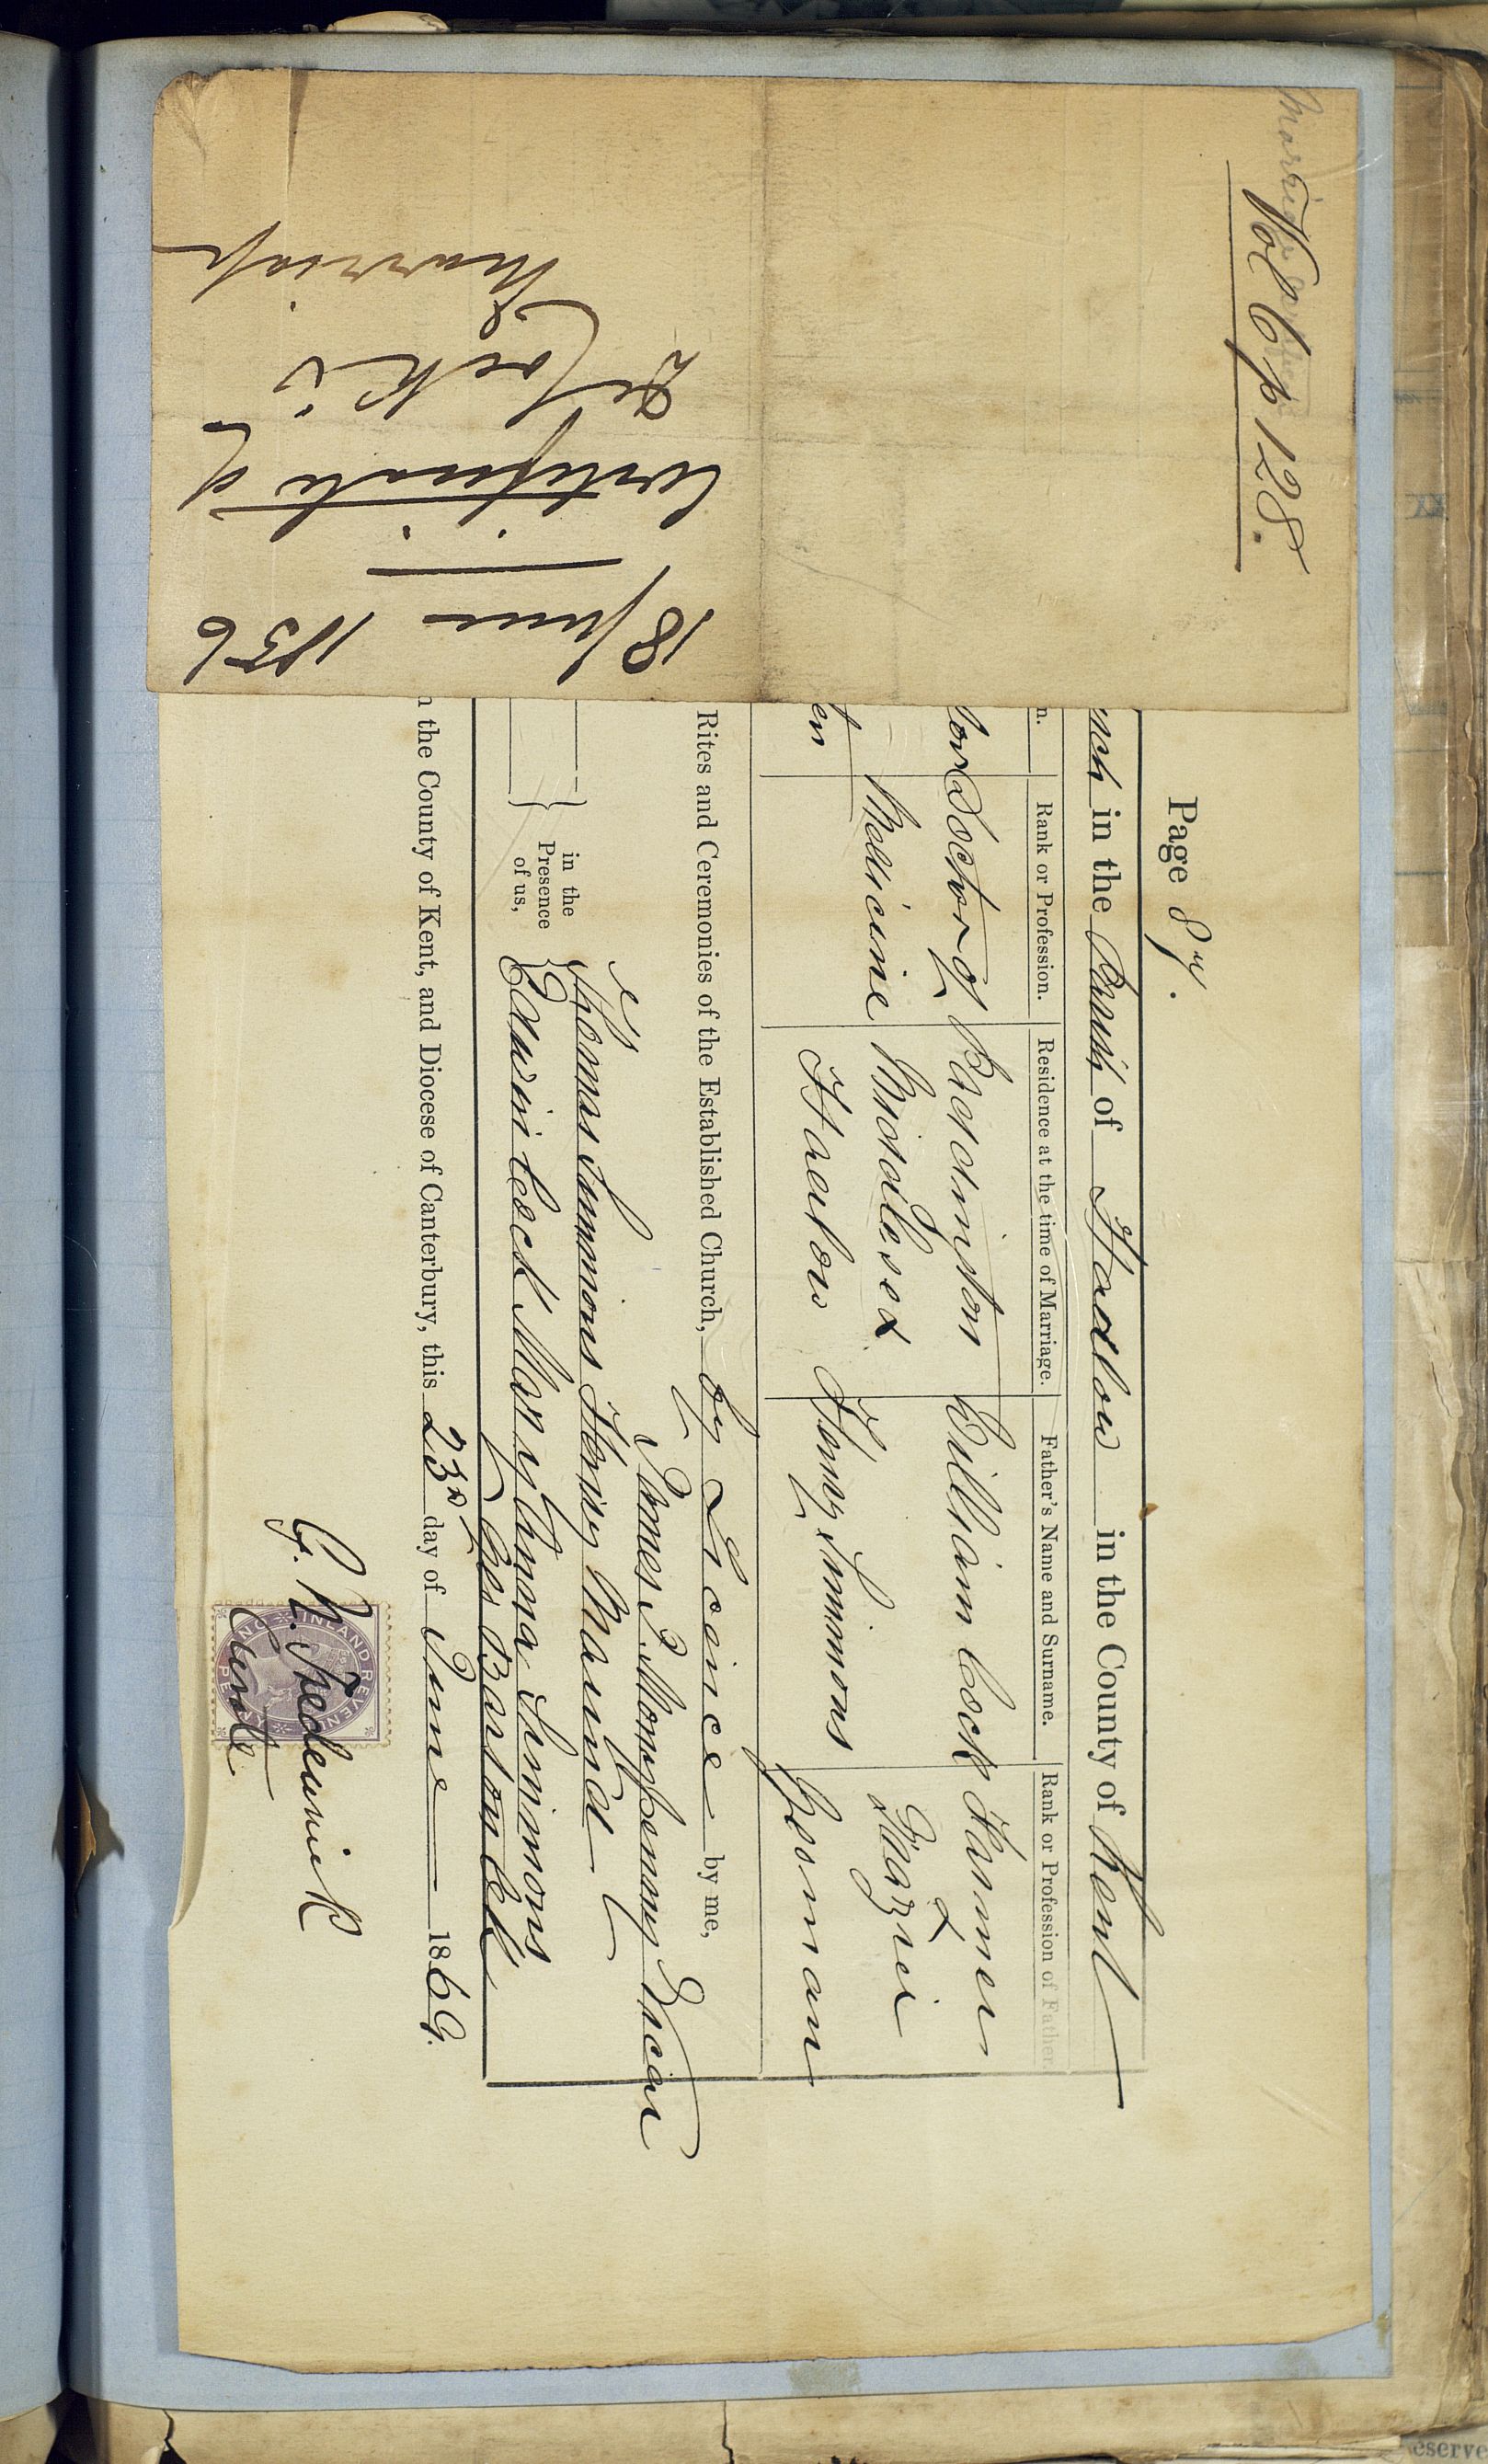 Vol 6 p 128.
18 June 1856
Certificate of
Dr Cock's
Marriage
Page 87.
in the Parish of Hadlow in the County of Kent
n.
Rank or Profession.
Residence at the time of Marriage.
Father's Name and Surname.
Rank or Profession of Father.
lor
Doctor of
Medicine
Paddington
Middlesex
William Cock
Farmer
&
Grazier
Hadlow
Henry Simmons
Yeoman
Rites and Ceremonies of the Established Church, by Licence by me,
James P. Monypenny Vicar
in the
Presence
of us,
Thomas Simmons Henry
Edwin Cock Mary Anna Simmons
Barton Cock
n the County of Kent, and Diocese of Canterbury, this 23rd day of June 1869.
INLAND REVENUE
Curate